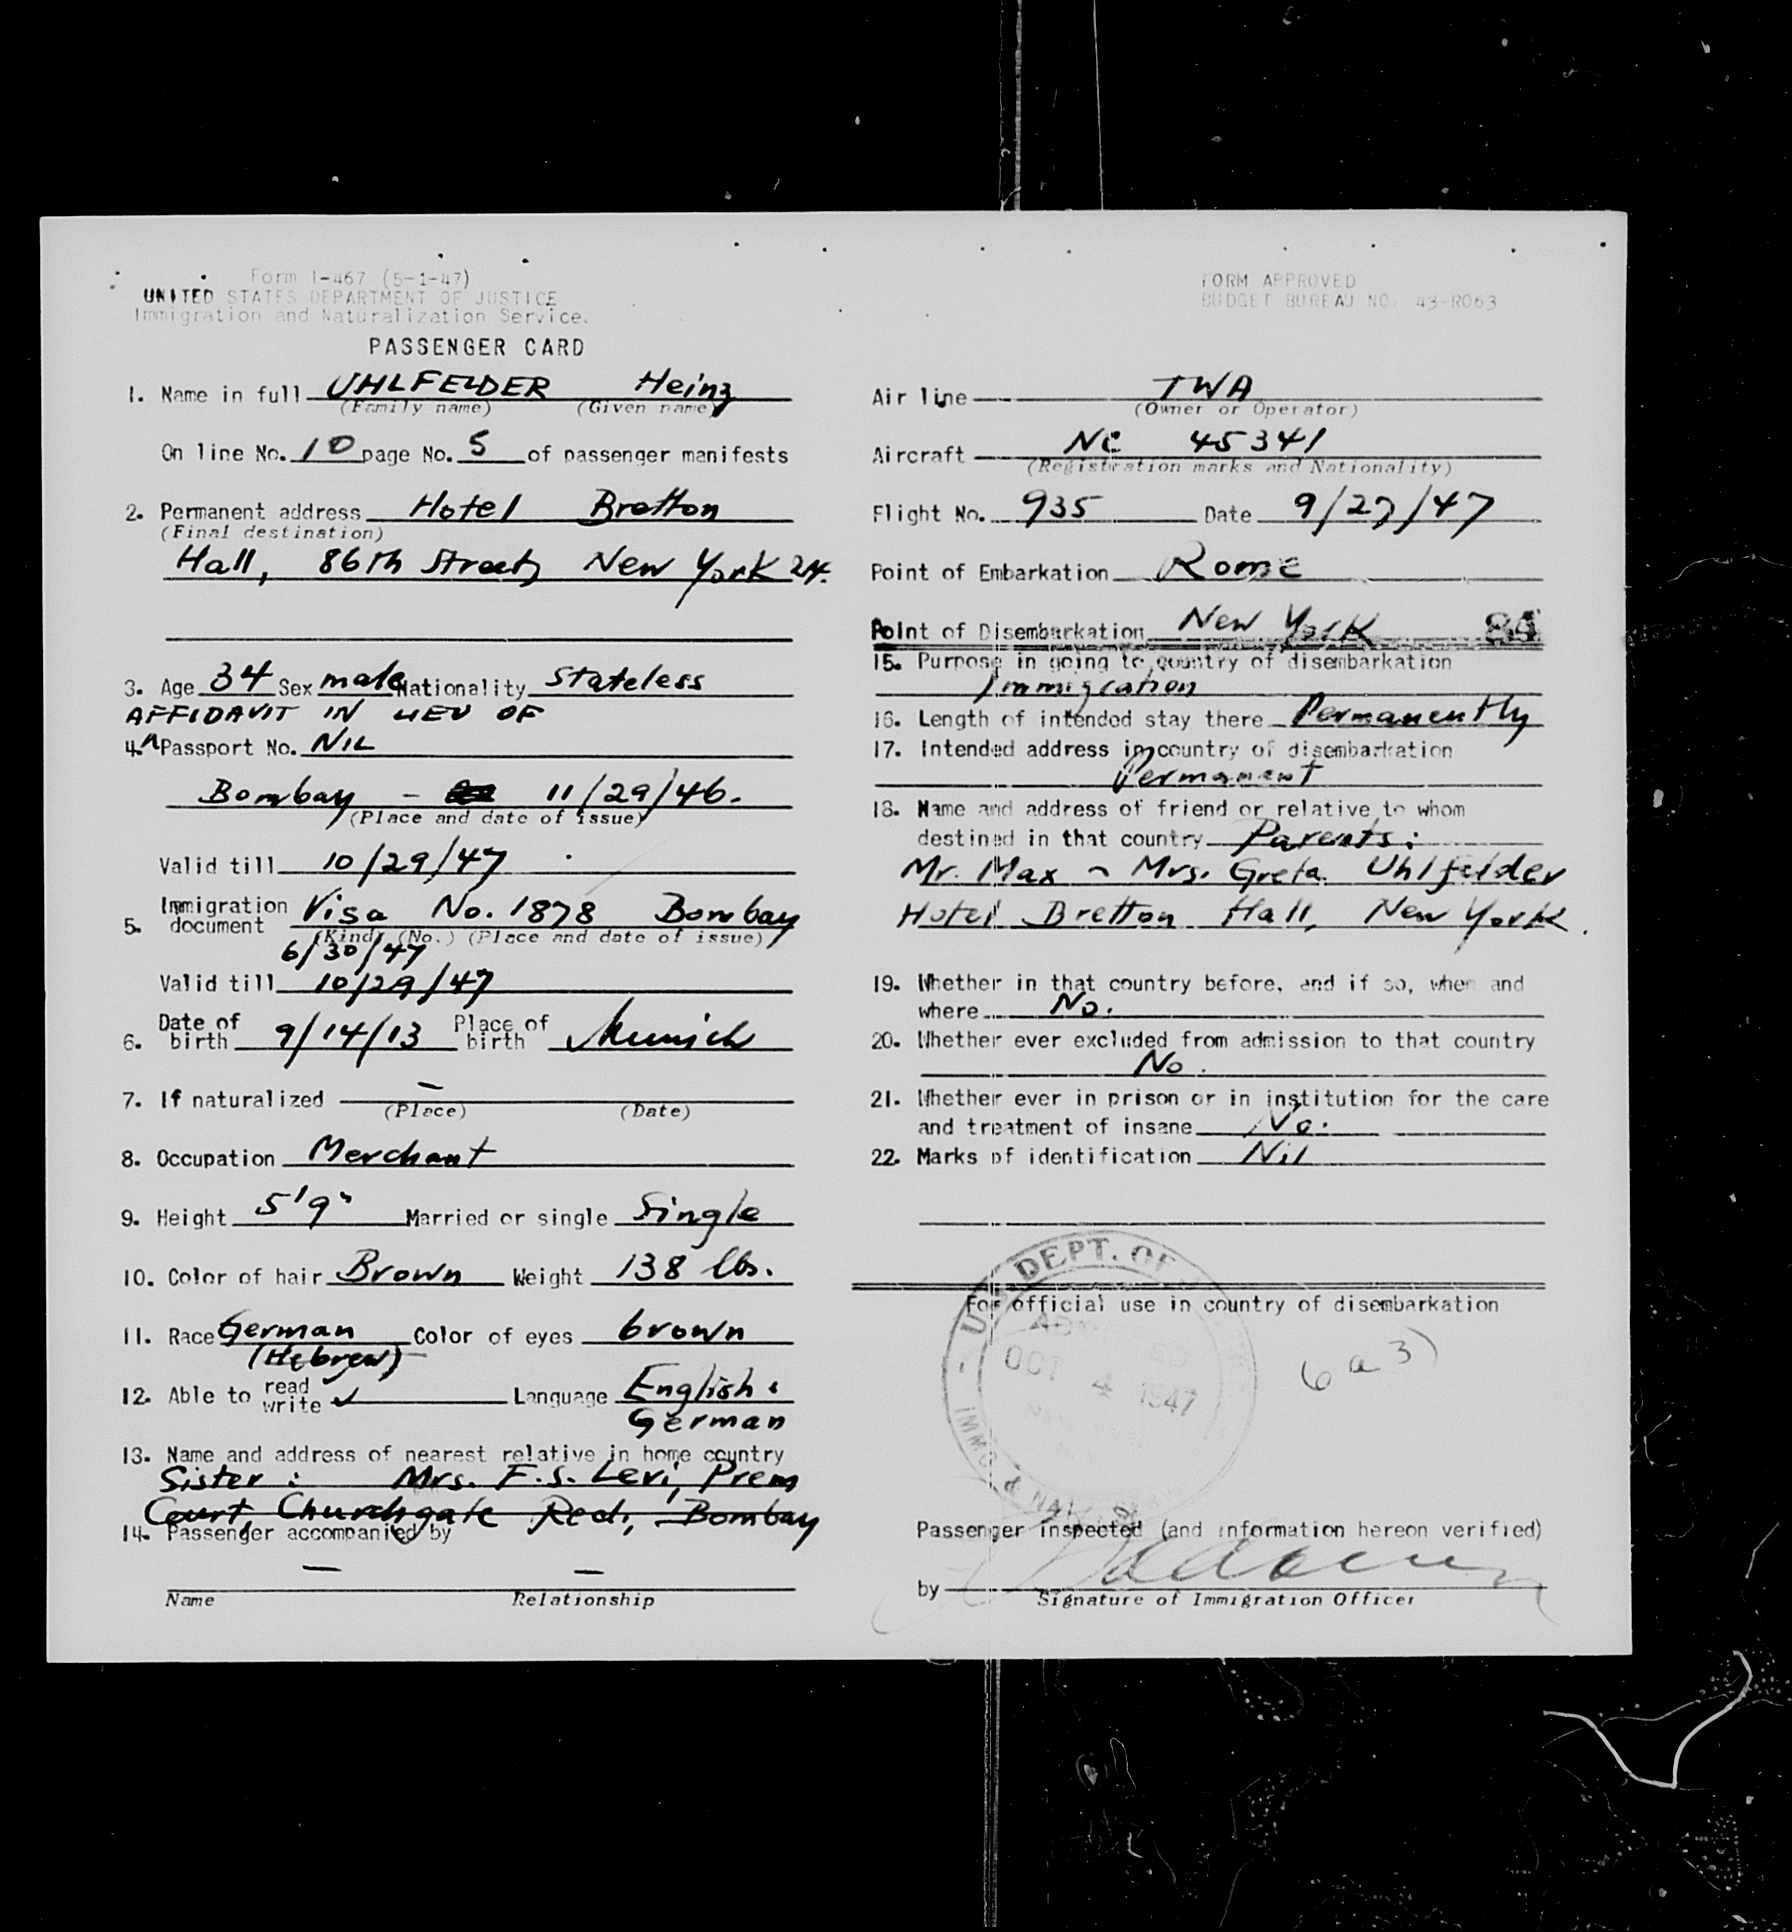 Form I-467 (5-1-47)
UNITED STATES DEPARTMENT OF JUSTICE
Immigration and Naturalization Service.
PASSENGER CARD
1. Name in full UHLFELDER Heinz
(Family name) (Given name)
On line No. 10 page No. 5 of passenger manifests
2. Permanent address Hotel Bretton
(Final destination)
Hall, 86th Street, New York 24.
3. Age 34 Sex male Nationality Stateless
AFFIDAVIT IN LIEU OF
4. Passport No. NIL
Bombay - 11/29/46.
(Place and date of issue)
Valid till 10/29/47
5. Immigration document Visa No. 1878 Bombay
(Kind) (No.) (Place and date of issue)
6/30/47
Valid till 10/29/47
6. Date of birth 9/14/13 Place of birth Munich
7. If naturalized -
(Place) (Date)
8. Occupation Merchant
9. Height 5'9" Married or single Single
10. Color of hair Brown Weight 138 lbs.
11. Race German Color of eyes brown
(Hebrew)
12. Able to read write ✓ Language English &
German
13. Name and address of nearest relative in home country
Sister: Mrs. F.S. Levi, Prem
Court, Churchgate Recl., Bombay
14. Passenger accompanied by
- -
Name Relationship
FORM APPROVED
BUDGET BUREAU NO. 43-R063
Air line TWA
(Owner or Operator)
Aircraft NC 45341
(Registration marks and Nationality)
Flight No. 935 Date 9/27/47
Point of Embarkation Rome
Point of Disembarkation New York 84
15. Purpose in going to country of disembarkation
Immigration
16. Length of intended stay there Permanently
17. Intended address in country of disembarkation
Permanent
18. Name and address of friend or relative to whom
destined in that country Parents:
Mr. Max ~ Mrs. Greta Uhlfelder
Hotel Bretton Hall, New York.
19. Whether in that country before, and if so, when and
where No.
20. Whether ever excluded from admission to that country
No.
21. Whether ever in prison or in institution for the care
and treatment of insane No.
22. Marks of identification Nil
For official use in country of disembarkation
U.S. DEPT. OF
OCT 4 1947
IMMG. & NAT.
6a3)
Passenger inspected (and information hereon verified)
by
Signature of Immigration Officer